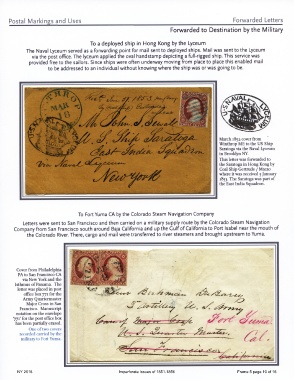 Postal Markings and Uses
Forwarded Letters
Forwarded to Destination by the Military
To a deployed ship in Hong Kong by the Lyceum
The Naval Lyceum served as a forwarding point for mail sent to deployed ships. Mail was sent to the Lyceum
via the post office. The lyceum applied the oval hand stamp depicting a full-rigged ship. This service was
provided free to the sailors. Since ships were often underway moving from place to place this enabled mail
to be addressed to an individual without knowing where the ship was or was going to be.
MAR
10
Mr John J. Small
U. S. Ship Saratoga
East India Squadron
via Naval Lyceum
New York
U.S. NAVAL LYCEUM
March 1853 cover from
Winthrop ME to the US Ship
Saratoga via the Naval Lyceum
in Brooklyn NY.
This letter was forwarded to
the Saratoga in Hong Kong by
where it was received 3 January
1855. The Saratoga was part of
the East India Squadron.
To Fort Yuma CA by the Colorado Steam Navigation Company
Letters were sent to San Francisco and then carried on military supply route by the Colorado Steam Navigation
Company from San Francisco south around Baja California and up the Gulf of California to Port Isabel near the mouth of
the Colorado River. There, cargo and mail were transferred to river steamers and brought upstream to Yuma.
Cover from Philadelphia
PA to San Francisco CA
via New York and the
Isthmus of Panama. The
letter was placed in post
office box 751 for the
Army Quartermaster
Major Cross in San
Francisco. Manuscript
notation on the envelope
"751" for the post office box
has been partially erased.
One of two covers
recorded carried by the
military to Fort Yuma.
U. S. Army
Care of Major Cross
Quarter Master
San Francisco
California
Fort Yuma
Cal.
NY 2019
Imperforate Issues of 1851-1856
Frame 5 page 10 of 16